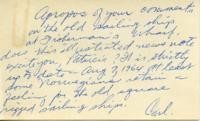 Apropos of your comments
on the old sailing ship
at Fisherman's Wharf,
does this illustrated news note
you, Patricia? It is strictly
up to date - Aug 7, 1964. At least
some Norwegians retain a
feeling for the old square
rigged sailing ships.
Carl.